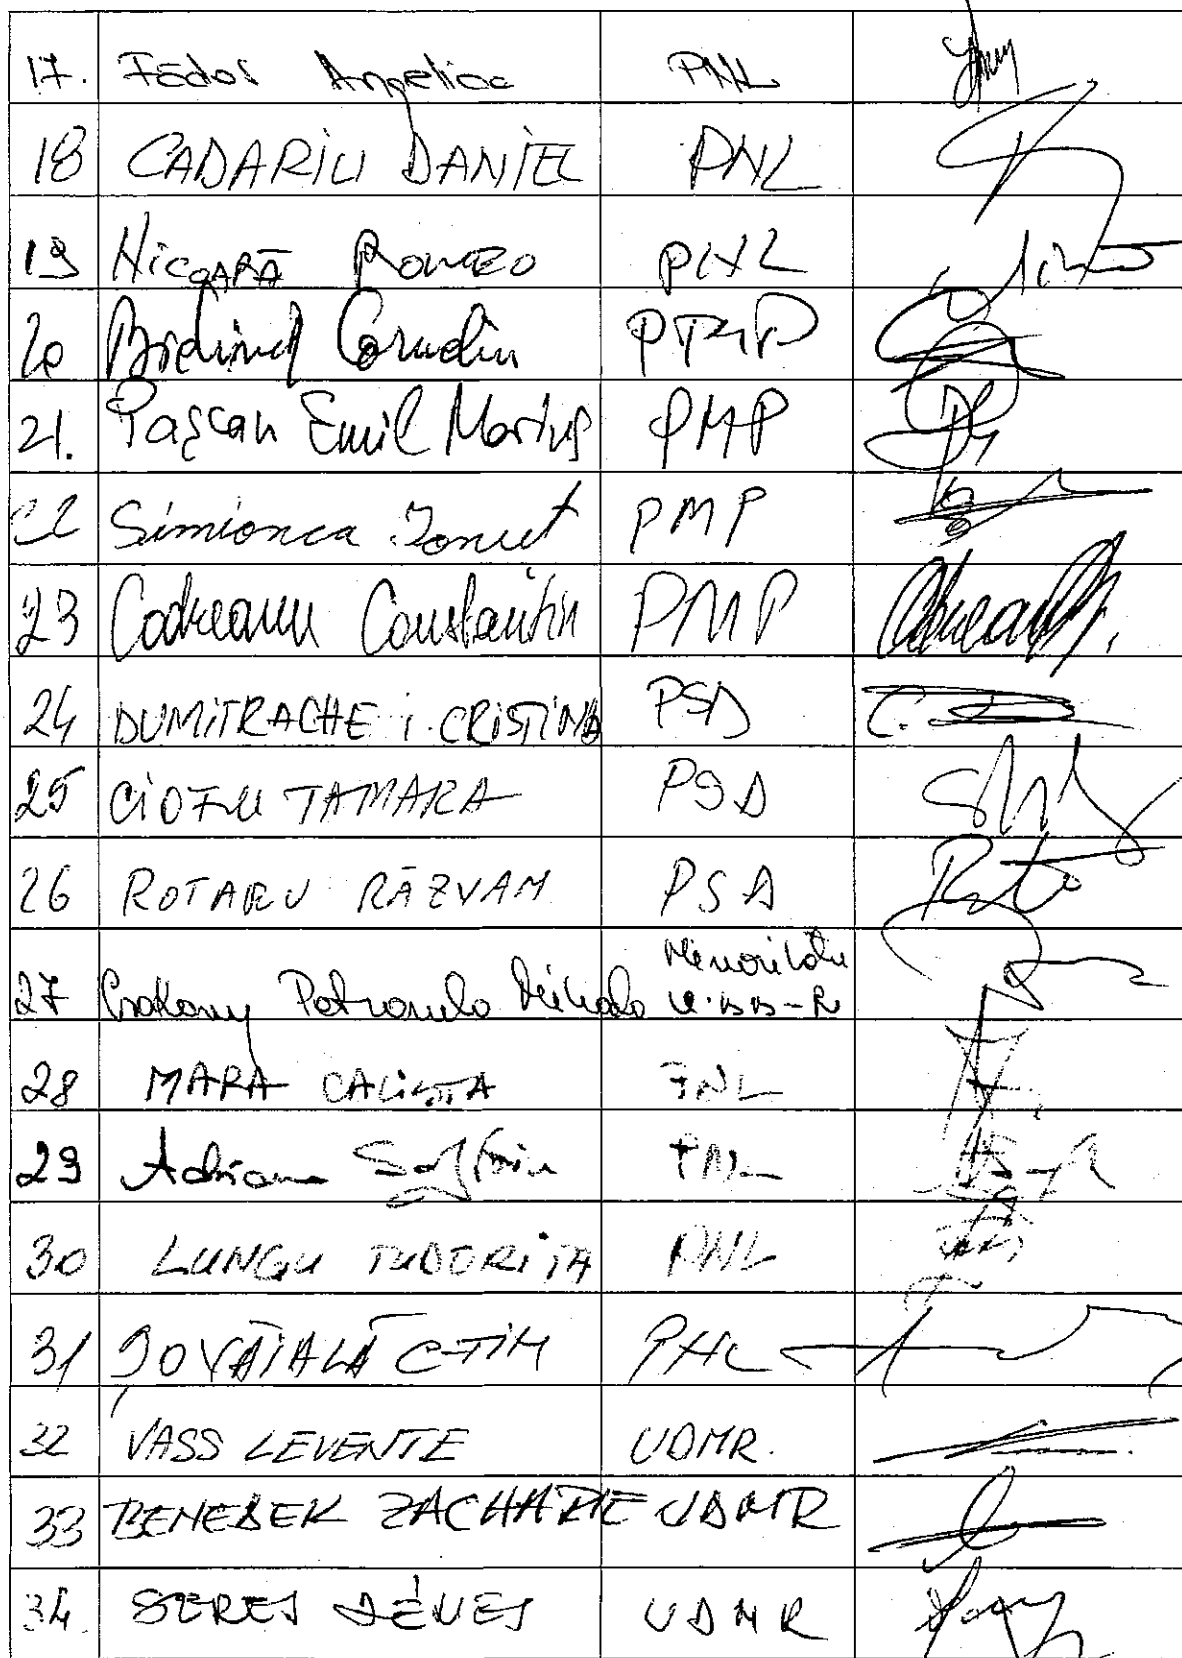 17. Fădor Angelica PNL
18 CADARIU DANIEL PNL
19 NICOARĂ Romeo PNL
20 Bidinel Cornelin PMP
21. Pașcan Emil Marius PMP
22 Simionca Ionuț PMP
23 Codreanu Constantin PMP Codreanu
24 DUMITRACHE I. CRISTINA PSD C.
25 CIOFU TAMARA PSD
26 ROTARU RĂZVAN PSD
27 Petronela Mihaela Minorități
28 MARA CALISTA PNL
29 Adriana Săftoiu PNL
30 LUNGU TUDORIȚA PNL
31 ȘOVĂIALĂ C-TIN PNL
32 VASS LEVENTE UDMR.
33 BENEDEK ZACHARIE UDMR
34. SERES DÉNES UDMR